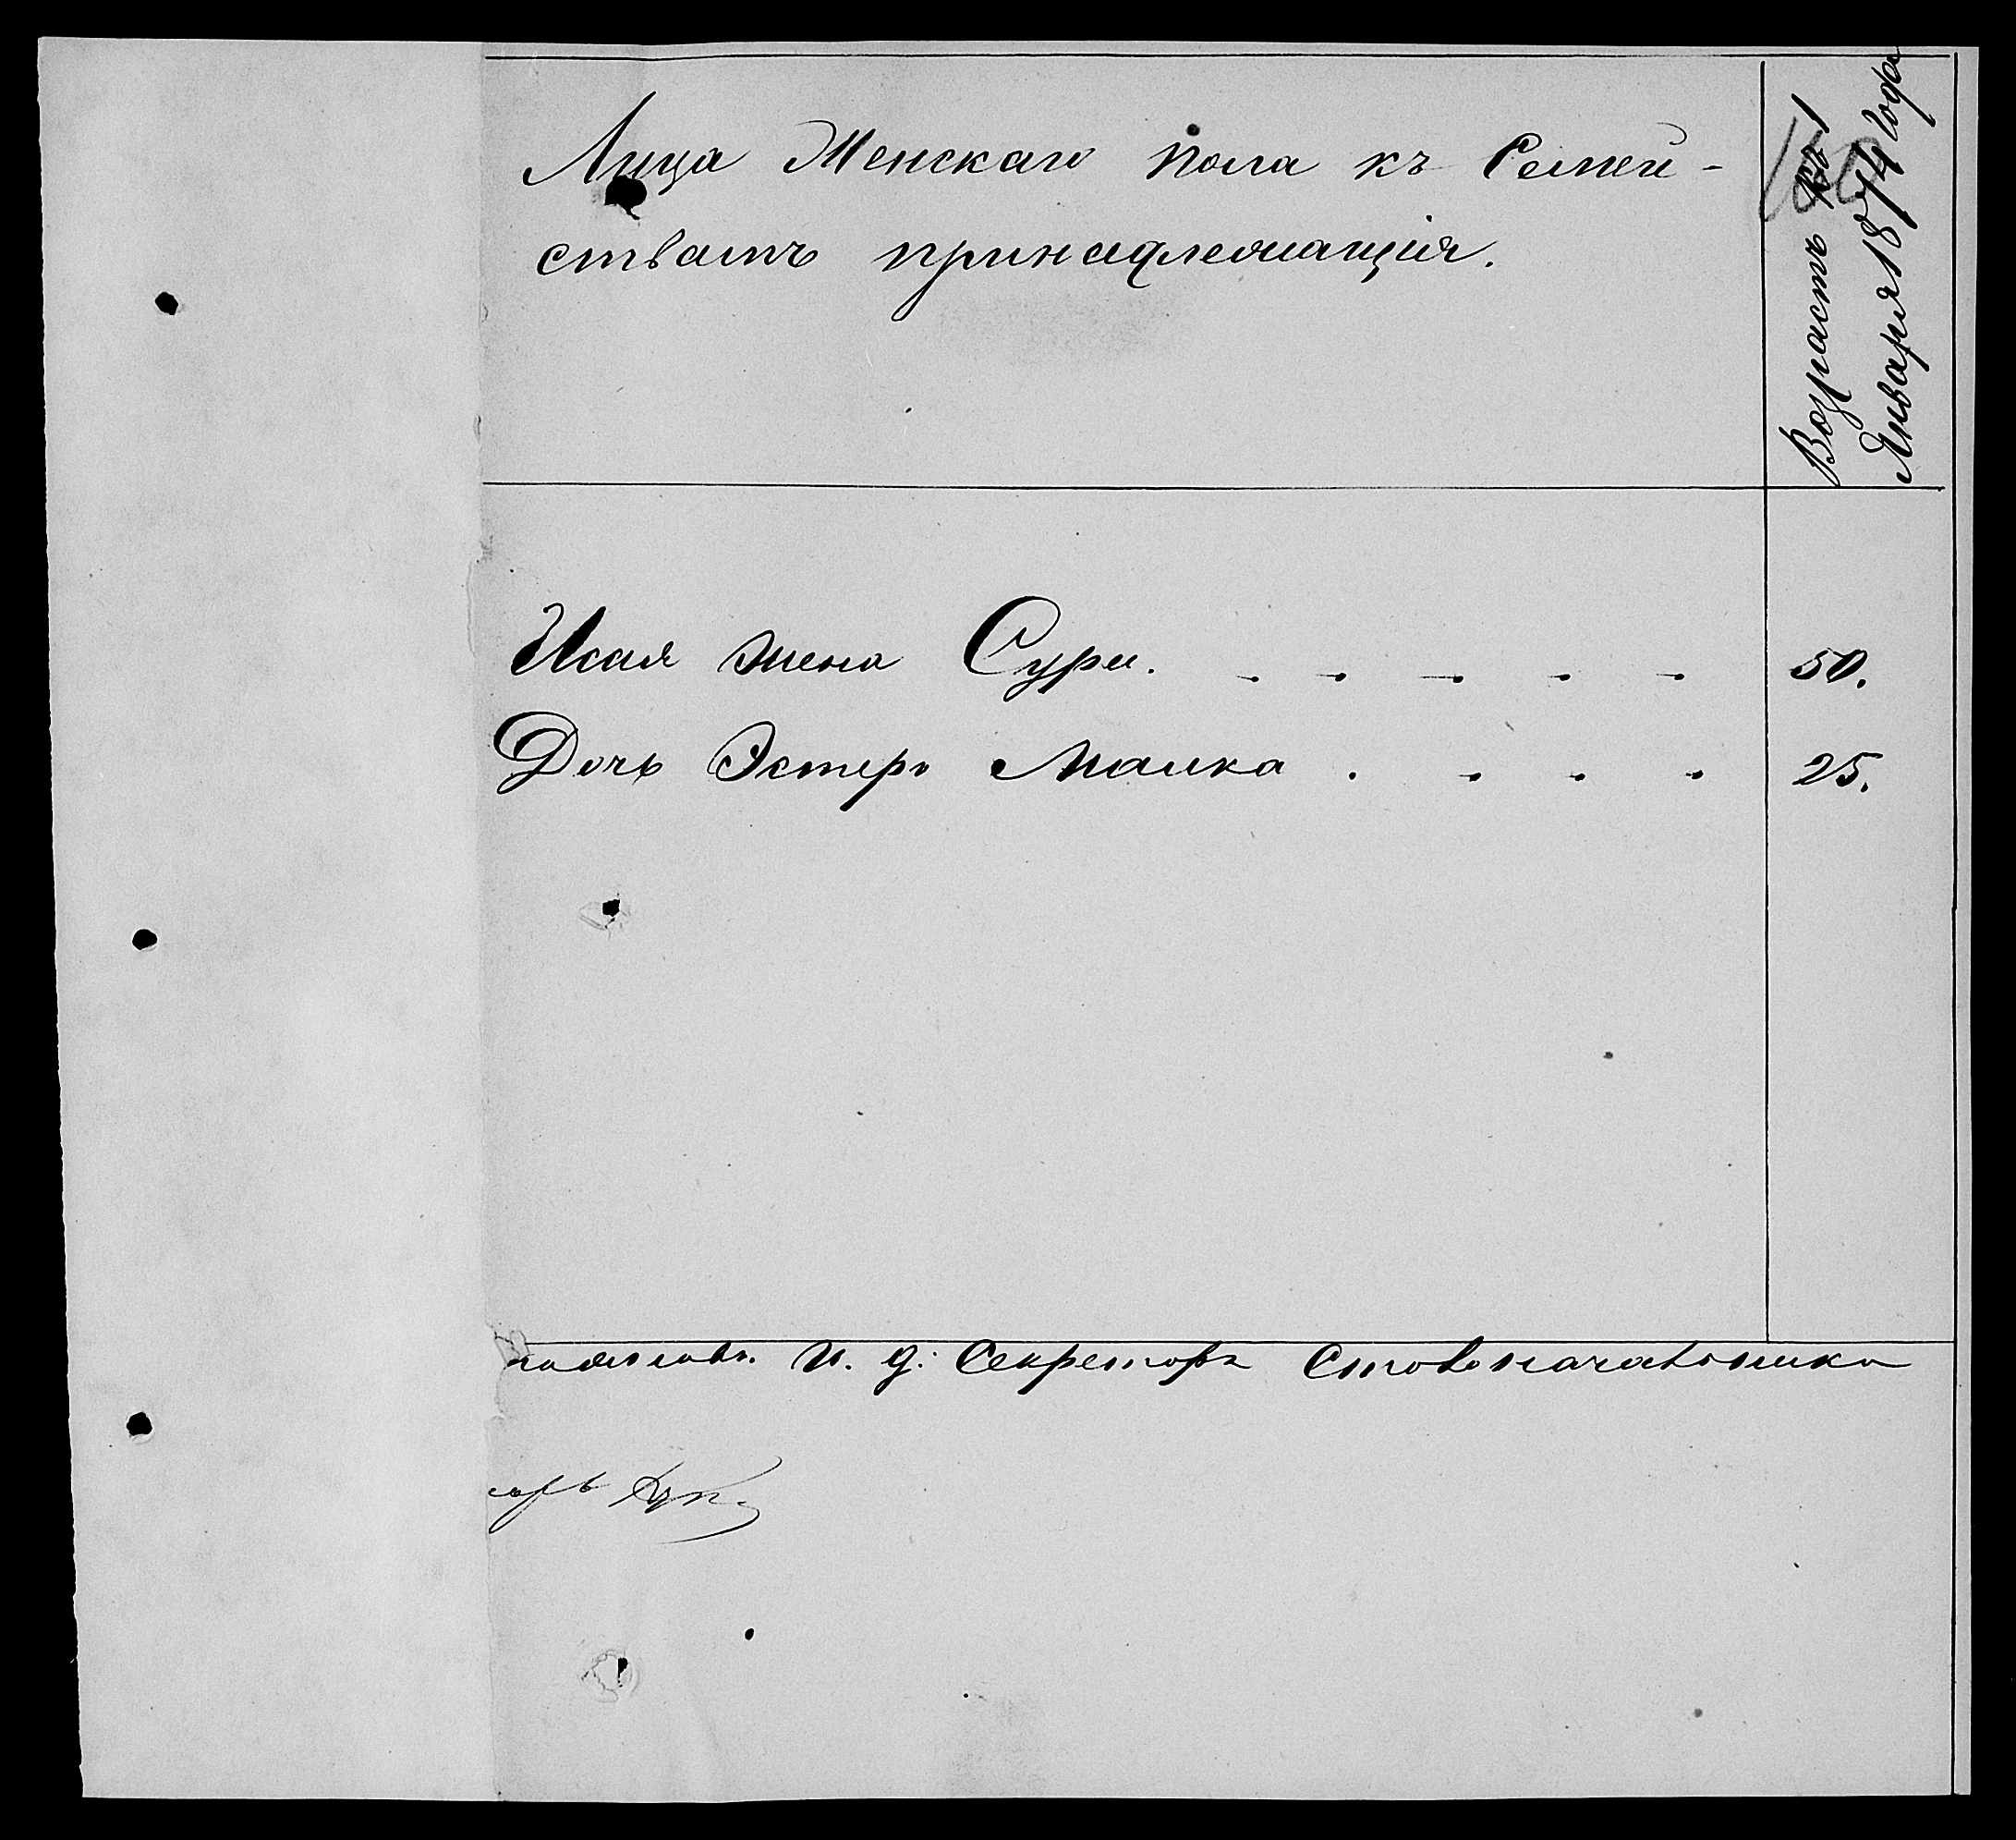 Лица Женскаго пола къ Семей-
ствамъ принадлежащія.
Возрастъ къ 1
Января 1874 года
Исая жена Сури. 50.
Дочь Эстеръ Малка 25.
И. д: Секретаря Столоначальника